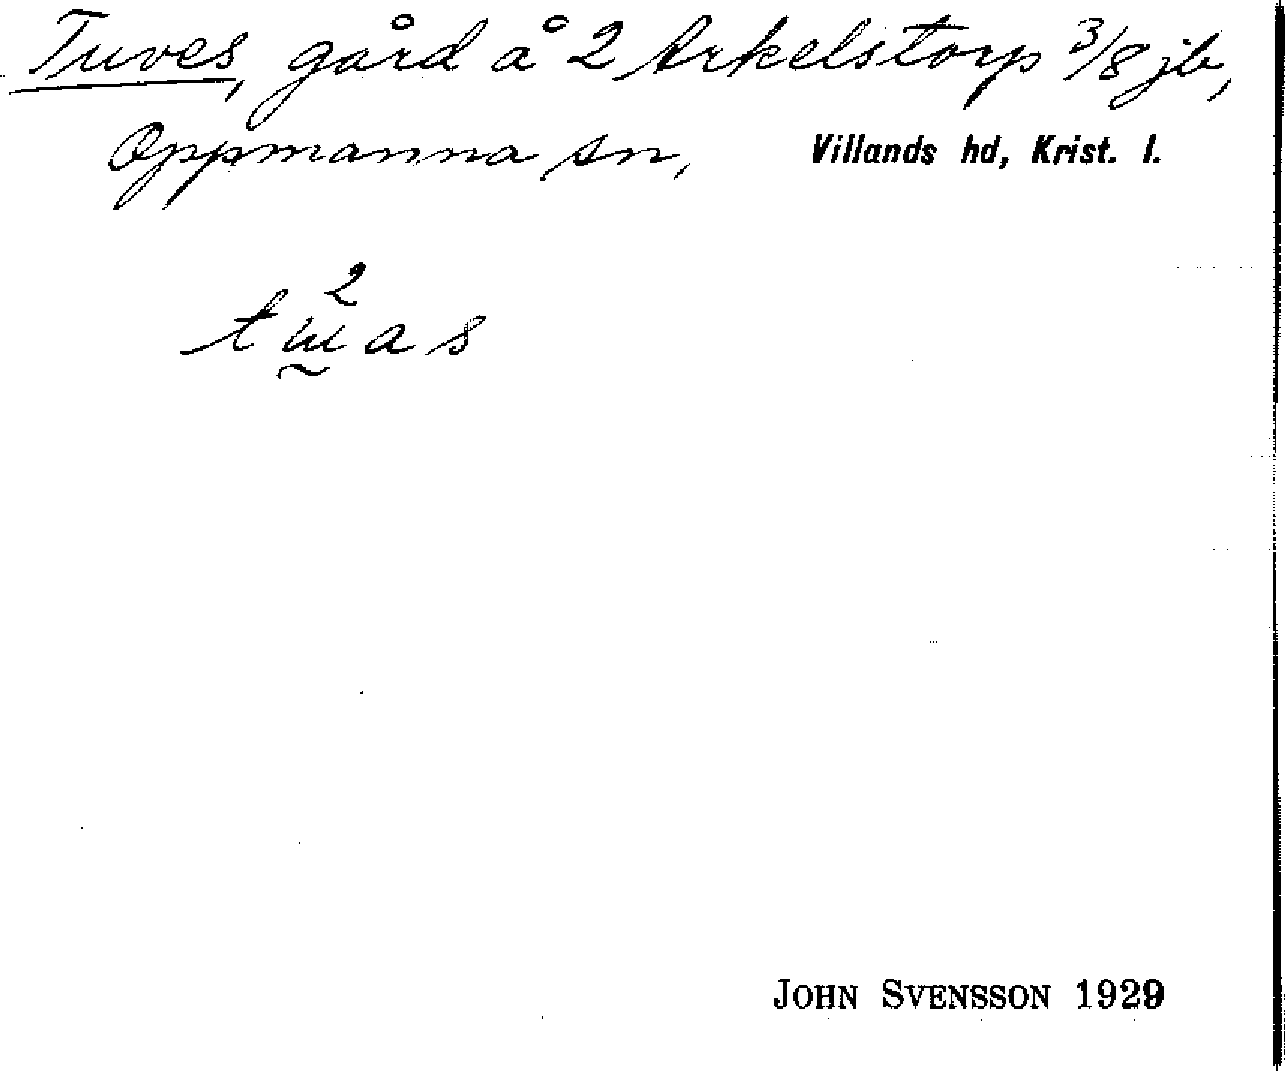 Tuves, gård å 2 Arkelstorp 3/8 jb,
Oppmanna sn, Villands hd, Krist. l.
2
JOHN SVENSSON 1929